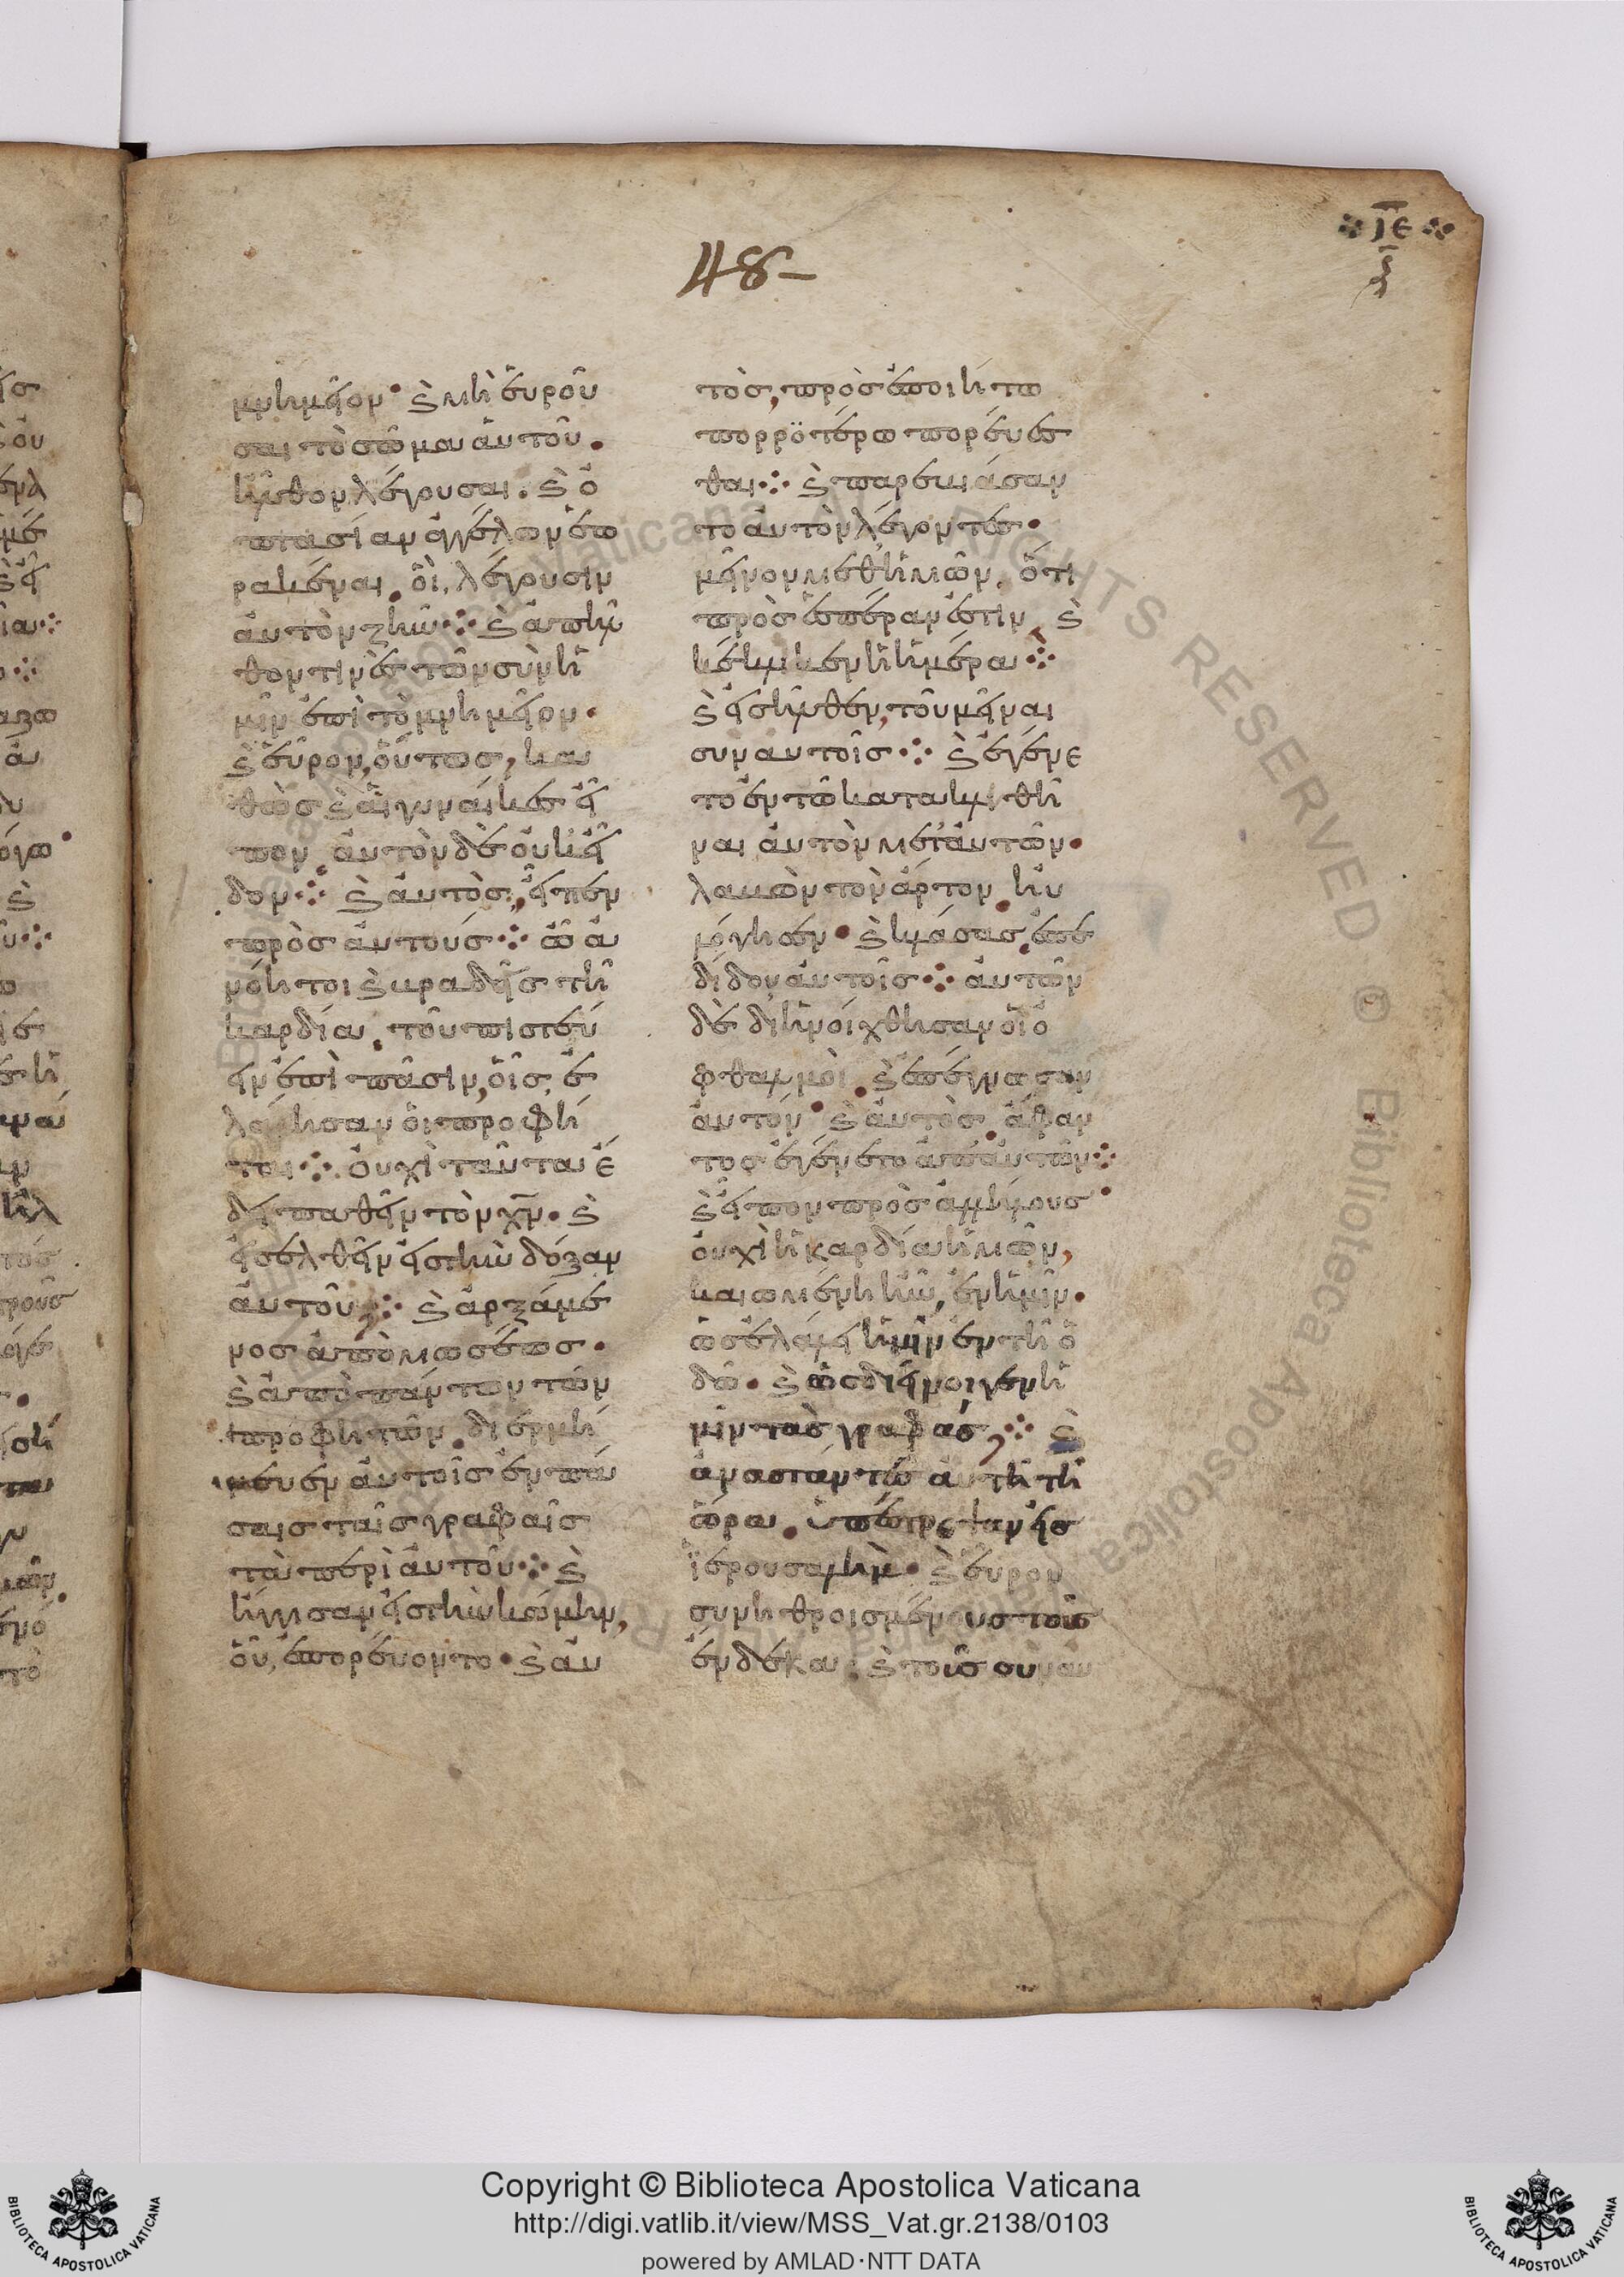 ·:· ΙΕ ·:·
ξ
48-
μνημεῖον· ϗ μὴ εὑροῦ
σαι τὸ σῶμα αὐτοῦ.
ἦλθον λέγουσαι. ϗ ὀ
πτασίαν ἀγγέλων ἑω
ρακέναι. οἳ, λέγουσιν
αὐτὸν ζῆν ·:· ϗ ἀπῆλ
θον τινὲς τῶν σὺν ἡ
μῖν ἐπὶ τὸ μνημεῖον·
ϗ εὗρον, οὕτως, κα
θὼς ϗ αἱ γυναῖκες εἶ
πον, αὐτὸν δὲ οὐκ εἶ
δον ·:· ϗ αὐτὸς, εἶπεν
πρὸς αὐτούς ·:· ὦ ἀ
νόητοι ϗ βραδεῖς τῆ
καρδία, τοῦ πιστεύ
ειν ἐπὶ πᾶσιν, οἷς, ἐ
λάλησαν οἱ προφῆ
ται ·:· οὐχὶ ταῦτα ἔ
δει παθεῖν τὸν χν̅· ϗ
εἰσελθεῖν εἰς τὴν δόξαν
αὐτοῦ; ·:· ϗ ἀρξάμε
νος ἀπὸ μωσέως·
ϗ ἀπὸ πάντων τῶν
προφητῶν, διερμή
νευεν αὐτοῖς ἐν πά
σαις ταῖς γραφαῖς
τὰ περὶ αὐτοῦ ·:· ϗ
ἤγγισαν εἰς τὴν κώμην,
οὗ, ἐπορεύοντο· ϗ αὐ
τὸς, προσεποιήτω
πορρϊτέρω πορεύεσ
θαι ·:· ϗ παρεβιάσαν
το αὐτὸν λέγοντες·
μεῖνον μεθ' ἡμῶν, ὅτι
πρὸς ἑσπέραν ἐστὶν, ϗ
κέκλικεν ἡ ἡμέρα ·:·
ϗ εἰσῆλθεν, τοῦ μεῖναι
συν αυτοῖς ·:· ϗ ἐγένε
το ἐν τῶ κατακλιθῆ
ναι αὐτὸν μετ' αὐτῶν·
λαβὼν τὸν ἄρτον, ηὐ
λόγησεν· ϗ κλάσας, ἐπε
δίδου αὐτοῖς ·:· αὐτῶν
δὲ διηνοίχθησαν οἱ ὀ
φθαλμοὶ, ϗ ἐπέγνωσαν
αὐτόν· ϗ αὐτὸς, ἄφαν
τος ἐγένετο ἀπ' αὐτῶν ·:·
ϗ εἶπον πρὸς ἀλλήλους·
οὐχὶ ἡ καρδία ἡμῶν,
καιομένη ἦν, ἐν ἡμῖν·
ὡς ἐλάλει ἡμῖν ἐν τῆ ὁ
δῶ· ϗ ὡς διήνοιγεν ἡ
μῖν τὰς γραφάς; ·:· ϗ
ἀνασταντες αὐτῆ τῆ
ὥρα, ὑπέστρεψαν εἰς
ἱερουσαλὴμ· ϗ εὗρον
συνηθροισμένους τοὺς
ἕνδεκα, ϗ τοὺς σὺν αὐ
Copyright © Biblioteca Apostolica Vaticana
http://digi.vatlib.it/view/MSS_Vat.gr.2138/0103
powered by AMLAD·NTT DATA